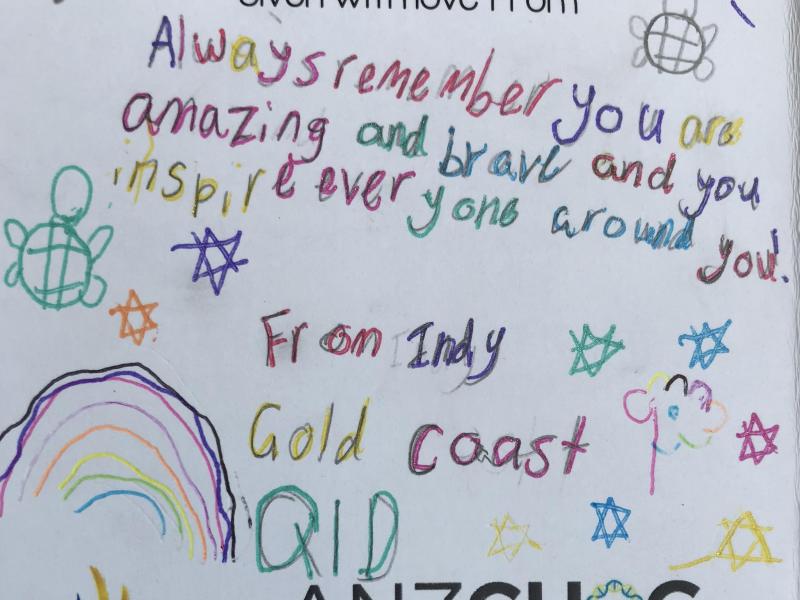 Given with love from
Always remember you are
amazing and brave and you
inspire everyone around
you!
From Indy
Gold Coast
QlD
ANZCHOG